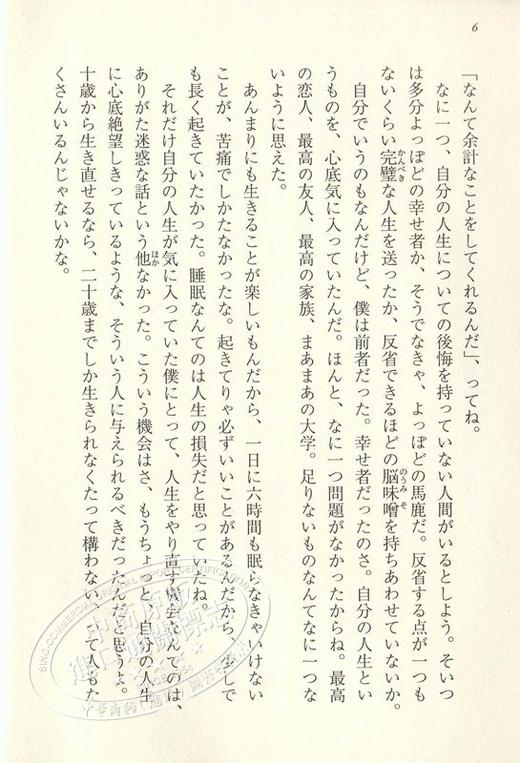 6
「なんて余計なことをしてくれるんだ」、ってね。
なに一つ、自分の人生についての後悔を持っていない人間がいるとしよう。そいつ
は多分よっぽどの幸せ者か、そうでなきゃ、よっぽどの馬鹿だ。反省する点が一つも
ないくらい完璧な人生を送ったか、反省できるほどの脳味噌を持ちあわせていないか。
自分でいうのもなんだけど、僕は前者だった。幸せ者だったのさ。自分の人生とい
うものを、心底気に入っていたんだ。ほんと、なに一つ問題がなかったからね。最高
の恋人、最高の友人、最高の家族、まあまあの大学。足りないものなんてなに一つな
いように思えた。
あんまりにも生きることが楽しいもんだから、一日に六時間も眠らなきゃいけない
ことが、苦痛でしかたなかったな。起きてりゃ必ずいいことがあるんだから、少しで
も長く起きていたかった。睡眠なんてのは人生の損失だと思っていたね。
それだけ自分の人生が気に入っていた僕にとって、人生をやり直す機会なんてのは、
ありがた迷惑な話という他なかった。こういう機会はさ、もうちょっと、自分の人生
に心底絶望しきっているような、そういう人に与えられるべきだったんだと思うよ。
十歳から生き直せるなら、二十歳までしか生きられなくたって構わない、って人もた
くさんいるんじゃないかな。